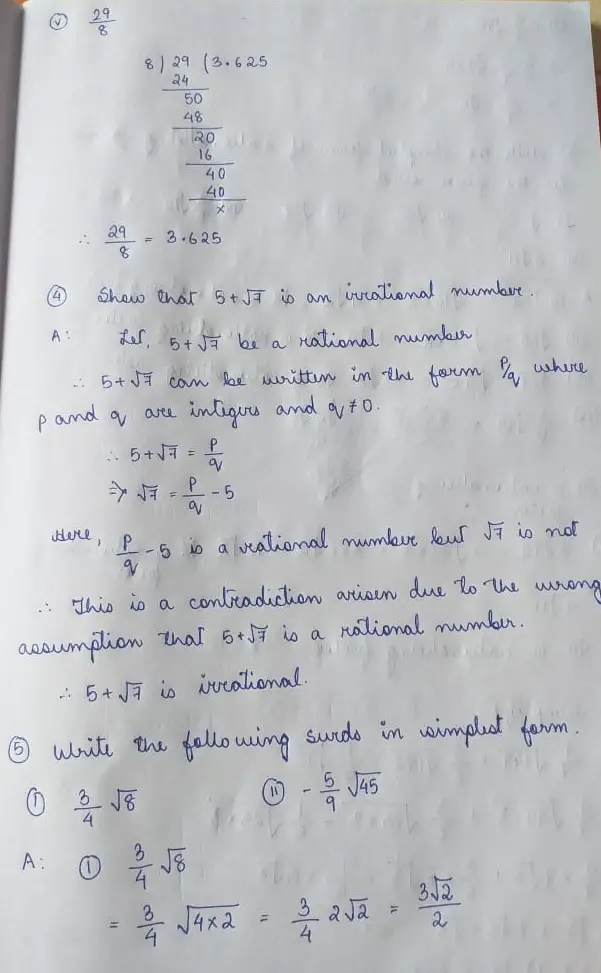 (v) 29/8
8) 29 (3.625
24
50
48
20
16
40
40
x
∴ 29/8 = 3.625
(4) Show that 5+√7 is an irrational number.
A: Let, 5+√7 be a rational number
∴ 5+√7 can be written in the form p/q where
p and q are integers and q ≠ 0.
∴ 5+√7 = p/q
⇒ √7 = p/q - 5
Here, p/q - 5 is a rational number but √7 is not
∴ This is a contradiction arisen due to the wrong
assumption that 5+√7 is a rational number.
∴ 5+√7 is irrational.
(5) Write the following surds in simplest form.
(I) 3/4 √8 (II) - 5/9 √45
A: (I) 3/4 √8
= 3/4 √4×2 = 3/4 2√2 = 3√2/2